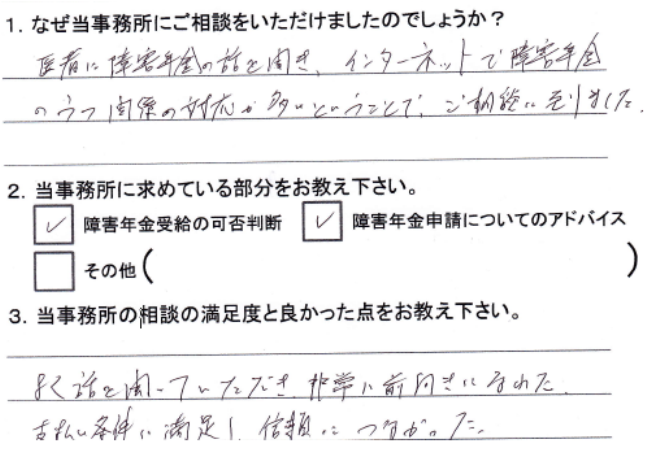 1. なぜ当事務所にご相談をいただけましたのでしょうか？
医者に障害年金の話を聞き、インターネットで障害年金
のうつ関係の対応が多いということで、ご相談に至りました。
2. 当事務所に求めている部分をお教え下さい。
✓ 障害年金受給の可否判断 ✓ 障害年金申請についてのアドバイス
その他（　　　）
3. 当事務所の相談の満足度と良かった点をお教え下さい。
よく話を聞いていただき、非常に前向きになれた。
支払い条件に満足し、信頼につながった。